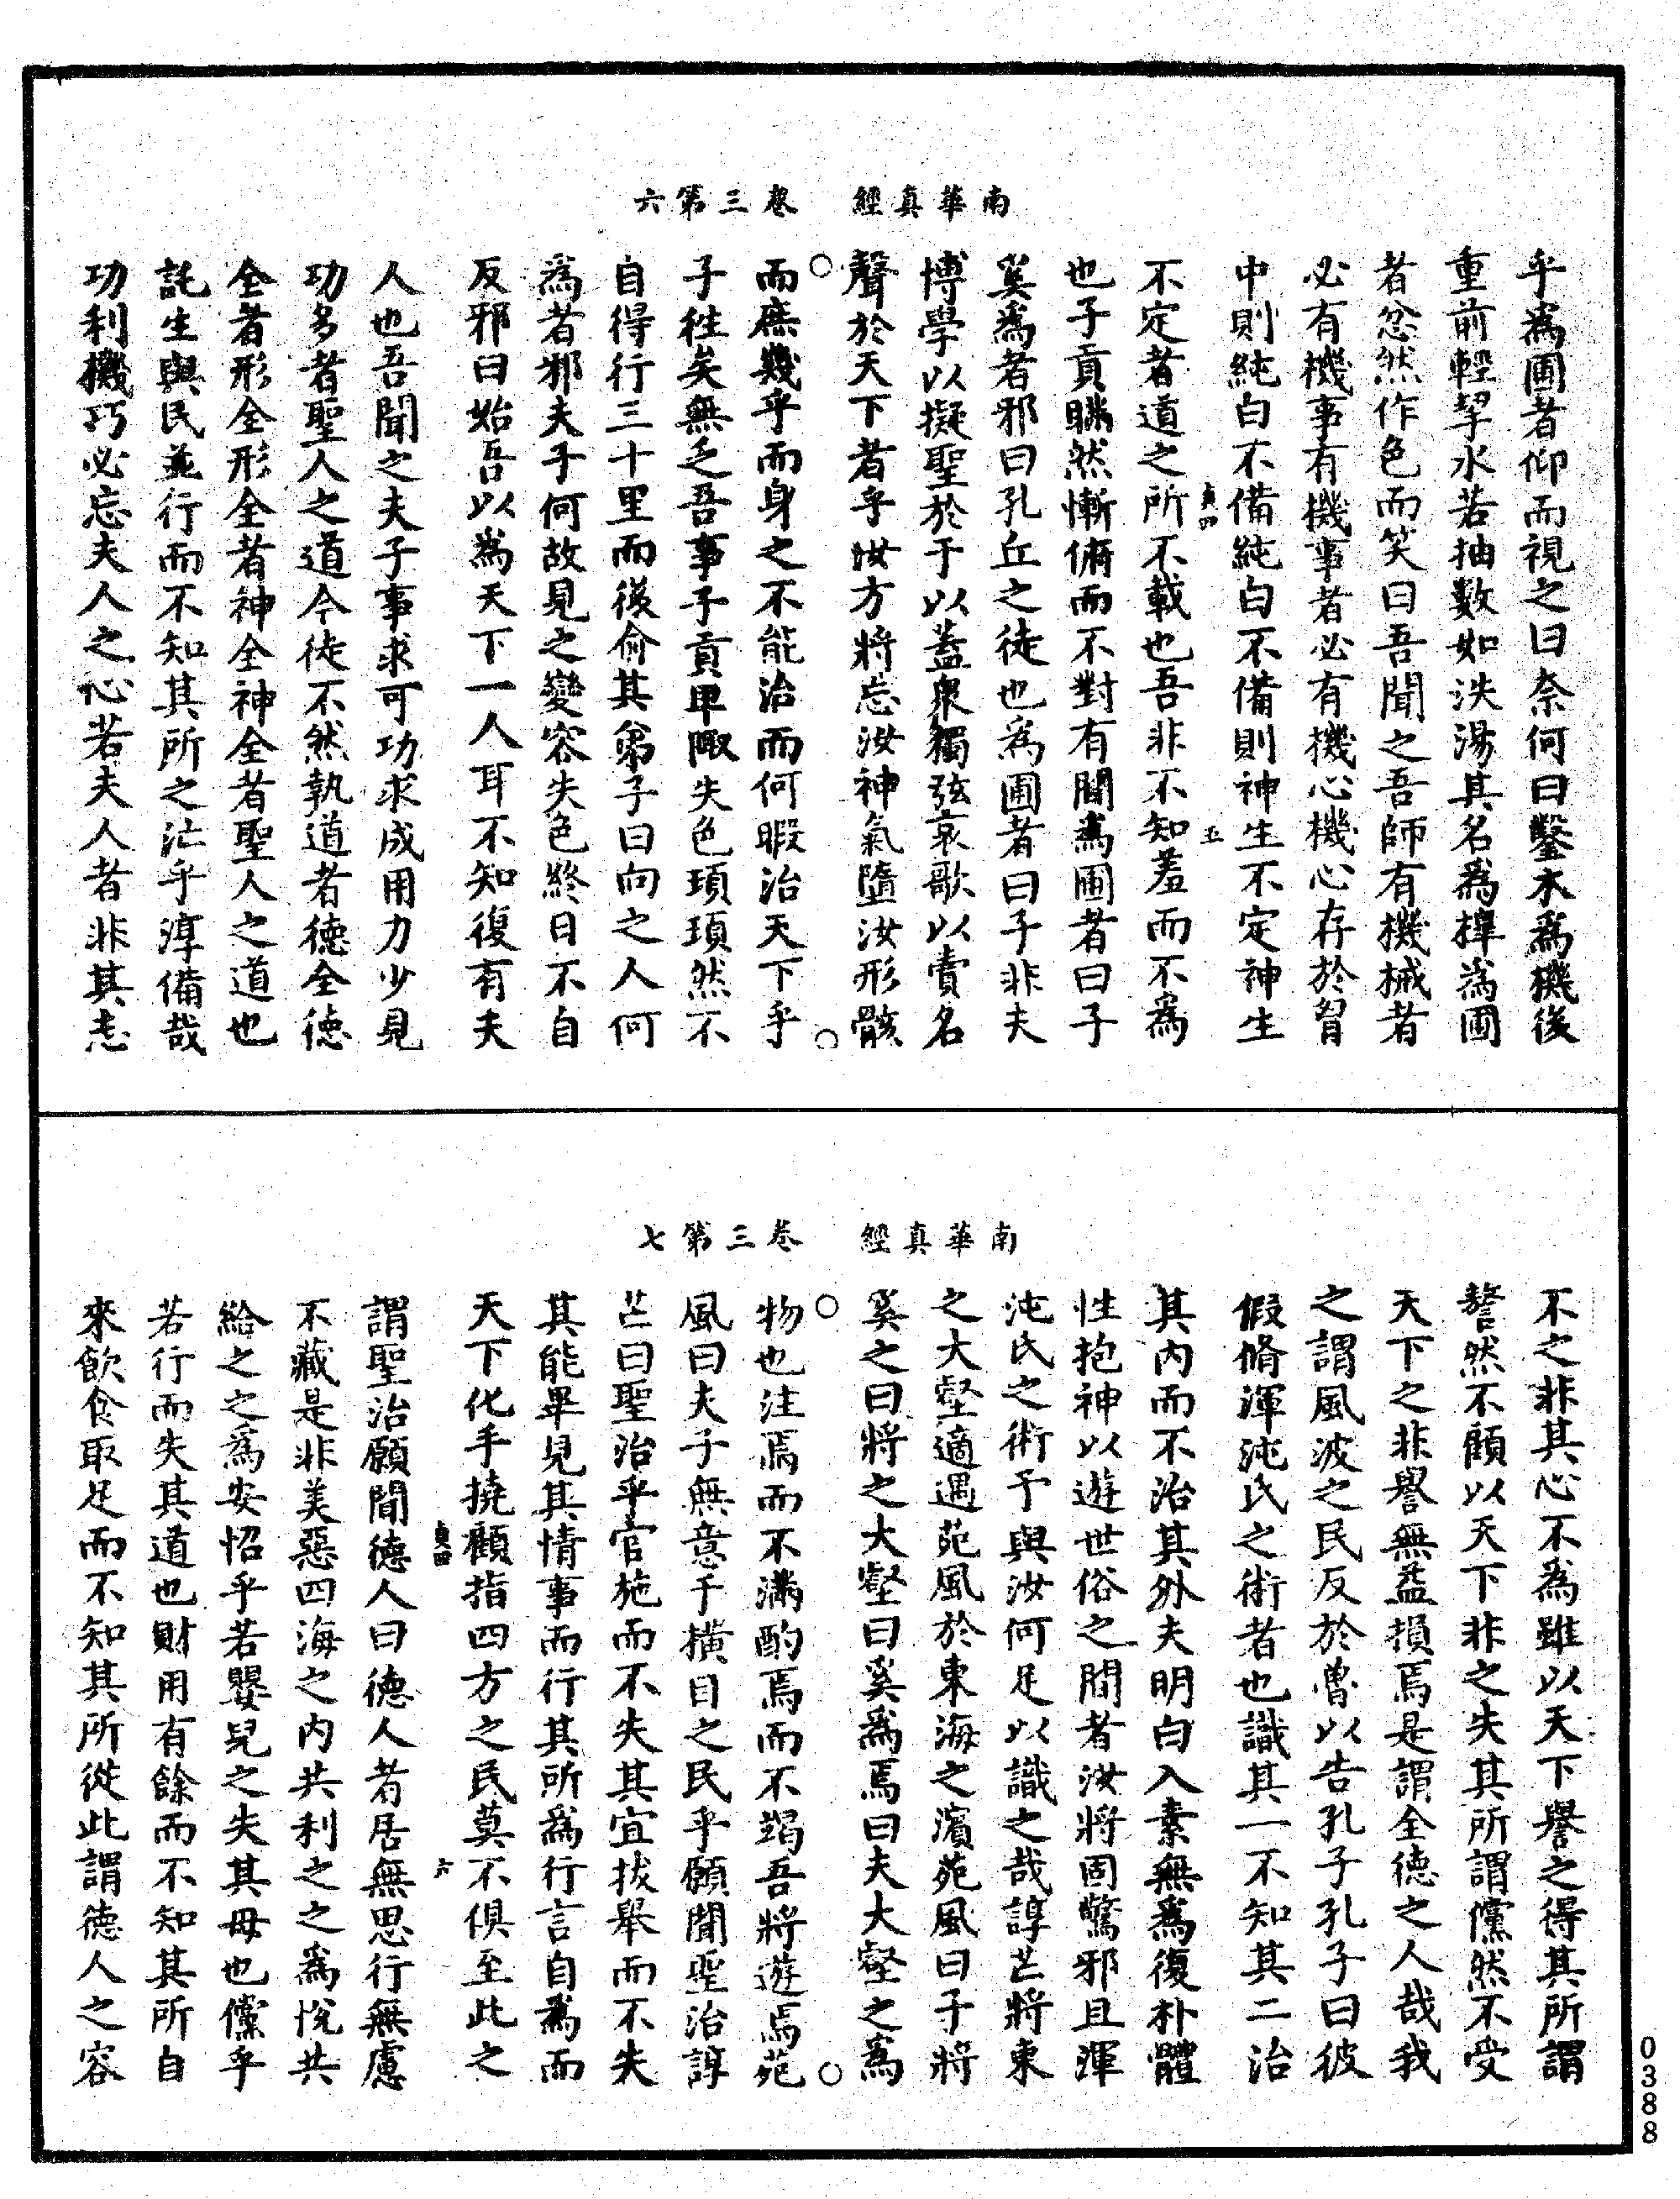 南華真經　卷三第六
乎為圃者仰而視之曰奈何曰鑿木為機後
重前輕挈水若抽數如泆湯其名為槹為圃
者忿然作色而笑曰吾聞之吾師有機械者
必有機事有機事者必有機心機心存於胷
中則純白不備純白不備則神生不定神生
貞四　五
不定者道之所不載也吾非不知羞而不為
也子貢瞞然慚俯而不對有間為圃者曰子
奚為者邪曰孔丘之徒也為圃者曰子非夫
博學以擬聖於于以蓋衆獨弦哀歌以賣名
聲於天下者乎汝方將忘汝神氣墮汝形骸
而庶幾乎而身之不能治而何暇治天下乎
子徃矣無乏吾事子貢卑陬失色頊頊然不
自得行三十里而後俞其弟子曰向之人何
為者邪夫子何故見之變容失色終日不自
反邪曰始吾以為天下一人耳不知復有夫
人也吾聞之夫子事求可功求成用力少見
功多者聖人之道今徒不然執道者德全德
全者形全形全者神全神全者聖人之道也
託生與民並行而不知其所之汒乎淳備哉
功利機巧必忘夫人之心若夫人者非其志
南華真經　卷三第七
不之非其心不為雖以天下譽之得其所謂
謷然不顧以天下非之失其所謂儻然不受
天下之非譽無益損焉是謂全德之人哉我
之謂風波之民反於魯以告孔子孔子曰彼
假脩渾沌氏之術者也識其一不知其二治
其内而不治其外夫明白入素無為復朴體
性抱神以遊世俗之間者汝將固驚邪且渾
沌氏之術予與汝何足以識之哉諄芒將東
之大壑適遇苑風於東海之濵苑風曰子將
奚之曰將之大壑曰奚為焉曰夫大壑之為
物也注焉而不滿酌焉而不竭吾將遊焉苑
風曰夫子無意于橫目之民乎願聞聖治諄
芒曰聖治乎官施而不失其宜拔舉而不失
其能畢見其情事而行其所為行言自為而
天下化手撓顧指四方之民莫不俱至此之
貞四　六
謂聖治願聞德人曰德人者居無思行無慮
不藏是非美惡四海之内共利之之為恱共
給之之為安怊乎若嬰兒之失其母也儻乎
若行而失其道也財用有餘而不知其所自
來飲食取足而不知其所從此謂德人之容
0388